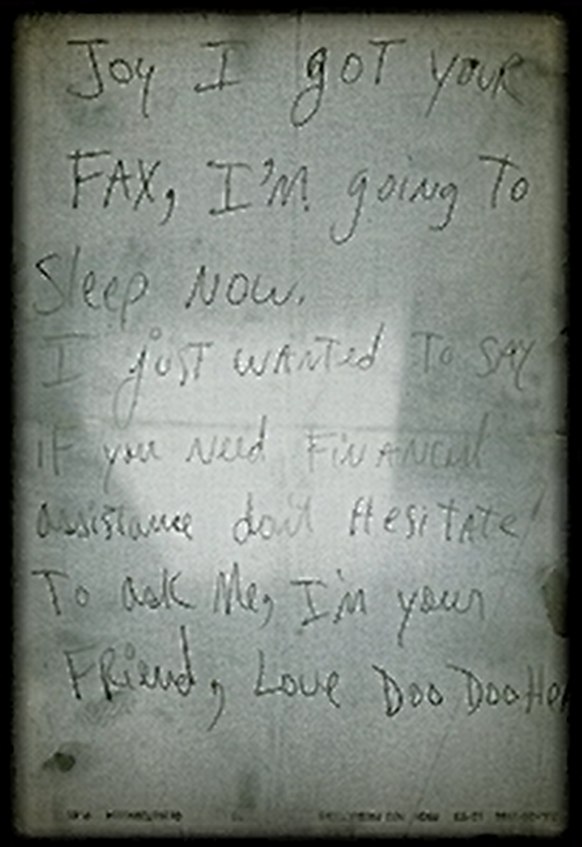 Joy I got your
FAX, I'm going to
Sleep now.
I just wanted to say
if you need financial
assistance don't Hesitate
To ask Me, I'm your
FRiend, Love Doo Doo Hea